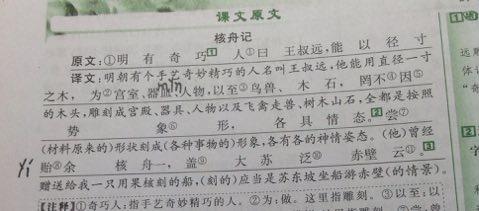 课文原文
核舟记
原文:①明 有 奇 巧1 人①曰 王叔远,能 以 径 寸
译文:明朝有个手艺奇妙精巧的人名叫王叔远,他能用直径一寸
之木, 为②宫室、器皿、人物,以至③鸟兽、 木 石, 罔不④因⑤
mǐn
的木头,雕刻成宫殿、器具、人物以及飞禽走兽、树木山石,全都是按照
势 象⑥ 形, 各 具 情 态。2尝⑦
(材料原来的)形状刻成(各种事物的)形象,各有各的神情姿态。(他)曾经
yí
贻⑧余 核 舟 一, 盖⑨ 大 苏 泛⑩ 赤壁 云⑪。3
赠送给我一只用果核刻的船,(刻的)应当是苏东坡坐船游赤壁(的情景)。
【注释】①奇巧人:指手艺奇妙精巧的人。②为:做。这里指雕刻。③以至:以
1
远
体
计
2
3